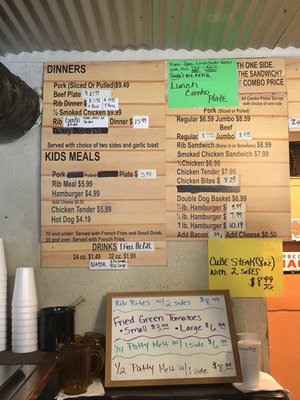 DINNERS
Pork (Sliced Or Pulled) $9.49
Beef Plate
Rib Dinner
½ Smoked Chicken $9.99
Combo Dinner
Served with choice of two sides and garlic toast
KIDS MEALS
Pork Plate $ 5.99
Rib Meal $5.99
Hamburger $4.99
Add Cheese $0.50
Chicken Tender $5.99
Hot Dog $4.19
10 and under - Served with French Fries and Small Drink.
55 and over - Served with French Fries.
DRINKS 1 Free Refill
24 oz. $1.49 32 oz.
WATER
Soda's are extra.
Lunch
Combo
Plate
WITH ONE SIDE.
THE SANDWICH?
Combo Price
All Combo Prices Served
with choice of one side
Pork (Sliced or Pulled)
Regular $6.59 Jumbo $8.59
BEEF
Regular Jumbo
Rib Sandwich (Bone in or Boneless) $8.99
Smoked Chicken Sandwich $7.99
½ Chicken $6.99
Chicken Tender $7.99
Chicken Bites $ 8.29
Double Dog Basket $6.99
¼ lb. Hamburger $ 5.99
⅓ lb. Hamburger $ 7.99
½ lb. Hamburger $ 10.19
Add Bacon Add Cheese $0.50
CUBE STEAK (8oz)
With 2 Sides
$8.99
Rib Bites w/ 2 sides $8.99
Fried Green Tomatoes
• Small $3.99 • Large $6.99
¼ Patty Melt w/ 1 side $6.99
½ Patty Melt w/ 1 side $8.99